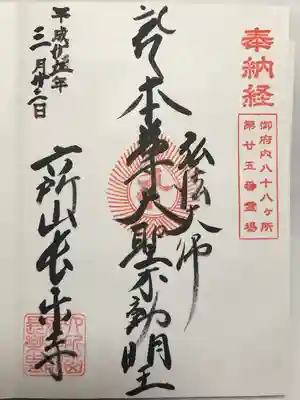 奉納経
御府内八十八ヶ所
第廿五番霊場
弘法大師
本尊大聖不動明王
平成廿五年
三月廿二日
六所山長楽寺